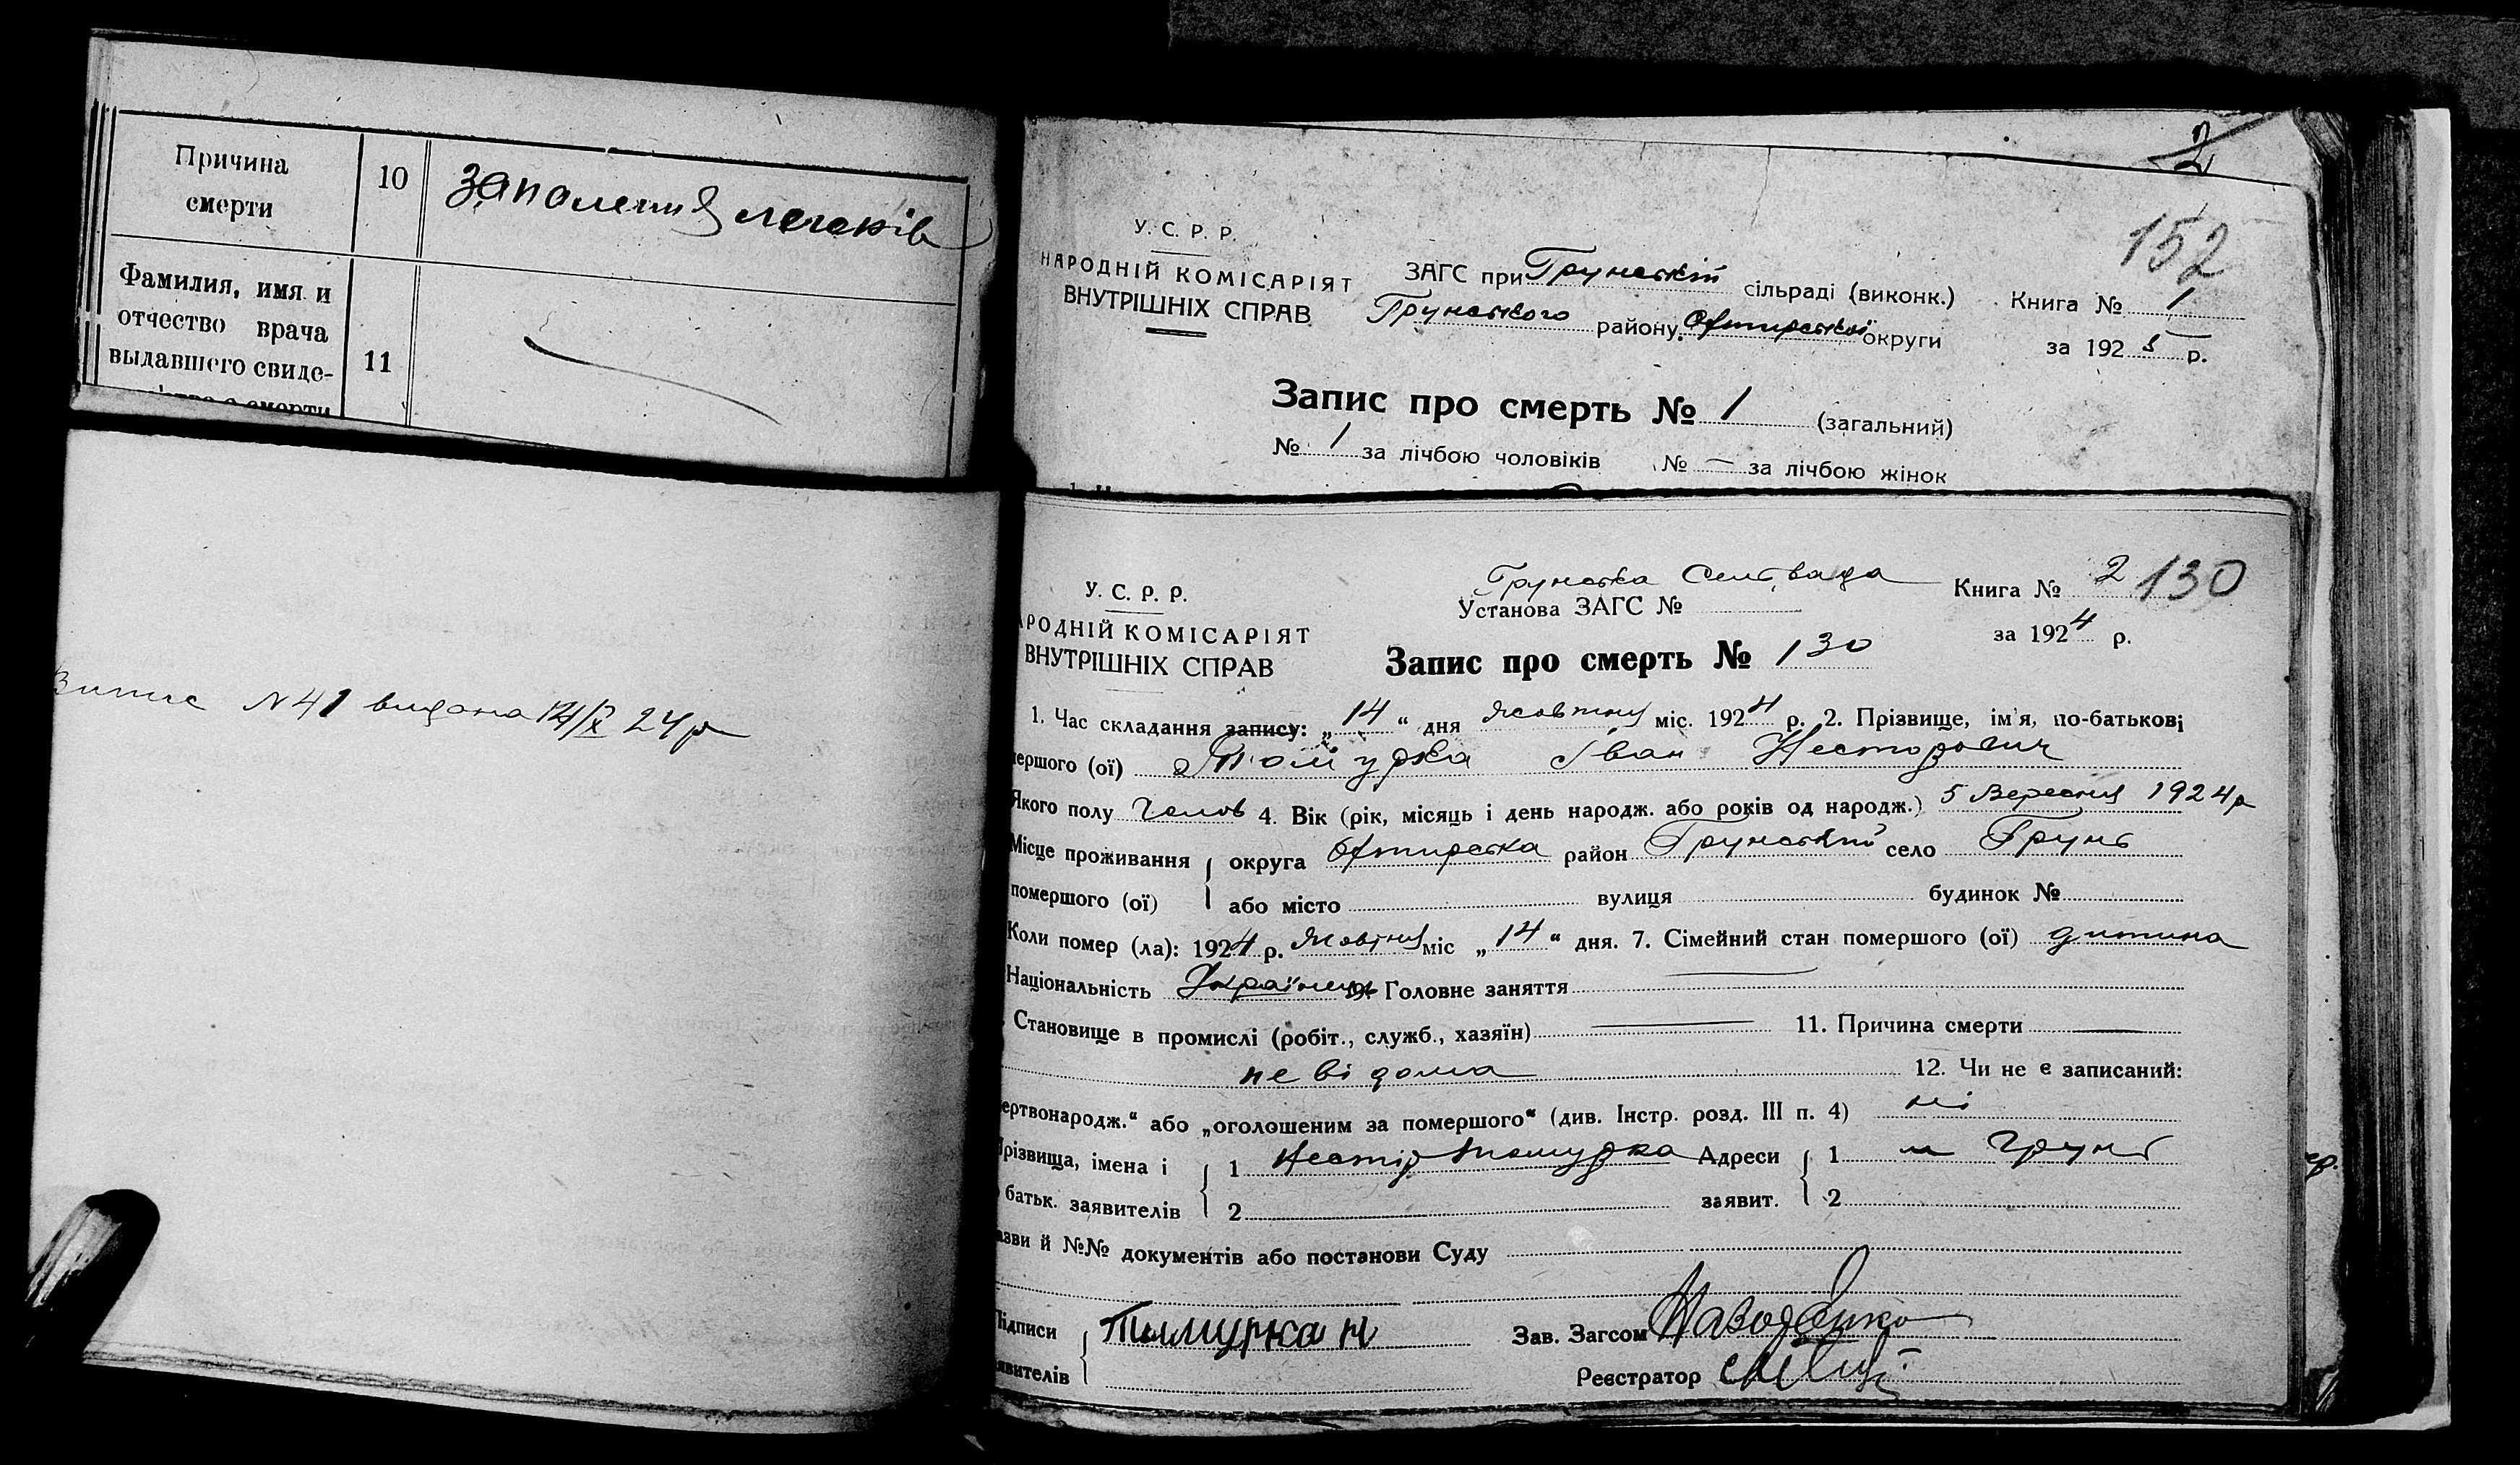 Причина
смерти
10
запаления легенів
Фамилия, имя и
отчество врача
выдавшего свиде-
11
Випис №41 видана 14/X 24 р
2
152
У. С. Р. Р.
НАРОДНІЙ КОМІСАРІЯТ
ВНУТРІШНІХ СПРАВ
ЗАГС при Грунській сільраді (виконк.)
Грунського району Охтирської округи
Книга № 1
за 1925 р.
Запис про смерть № 1 (загальний)
№ 1 за лічбою чоловіків № — за лічбою жінок
У. С. Р. Р.
РОДНІЙ КОМІСАРІЯТ
ВНУТРІШНІХ СПРАВ
Грунська
Установа ЗАГС №
Книга № 2 130
за 1924 р.
Запис про смерть № 130
1. Час складання запису: „14“ дня Жовтня міс. 1924 р. 2. Прізвище, ім'я, по-батькові
мершого (ої) Іван Несторович
Якого полу Чолов 4. Вік (рік, місяць і день народж. або років од народж.) 5 Вересня 1924 р
Місце проживання округа Охтирська район Грунський село Грунь
помершого (ої) або місто вулиця будинок №
Коли помер (ла): 1924 р. Жовтня міс „14“ дня. 7. Сімейний стан помершого (ої) дитина
Національність Українець 9. Головне заняття
Становище в промислі (робіт., служб., хазяїн) 11. Причина смерти
невідома 12. Чи не є записаний:
ертвонародж.“ або „оголошеним за помершого“ (див. Інстр. розд. III п. 4) ні
Прізвища, імена і 1 Нестір Адреси 1 м Грунь
батьк. заявителів 2 заявит. 2
азви й №№ документів або постанови Суду
Підписи
явителів
Зав. Загсом
Реєстратор